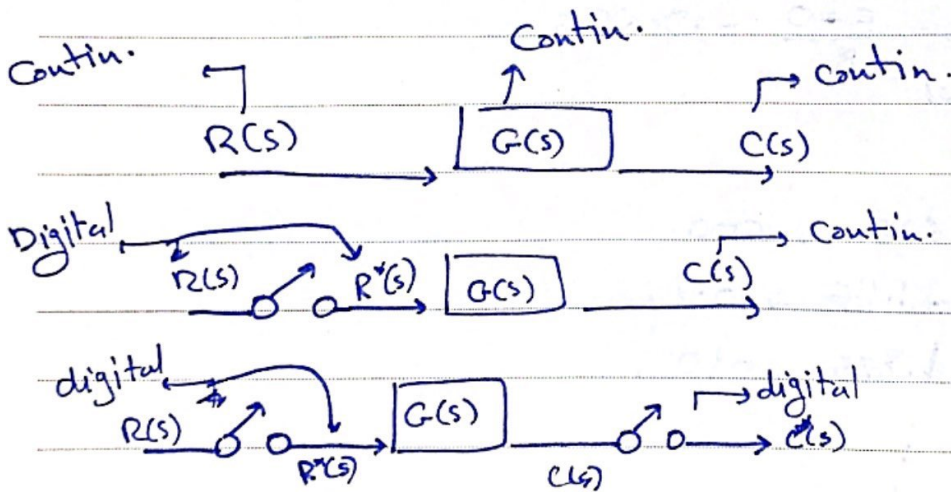 Contin.
Contin.
contin.
R(s)
G(s)
C(s)
Digital
contin.
R(s)
R*(s)
G(s)
C(s)
digital
digital
R(s)
R*(s)
G(s)
C(s)
C*(s)